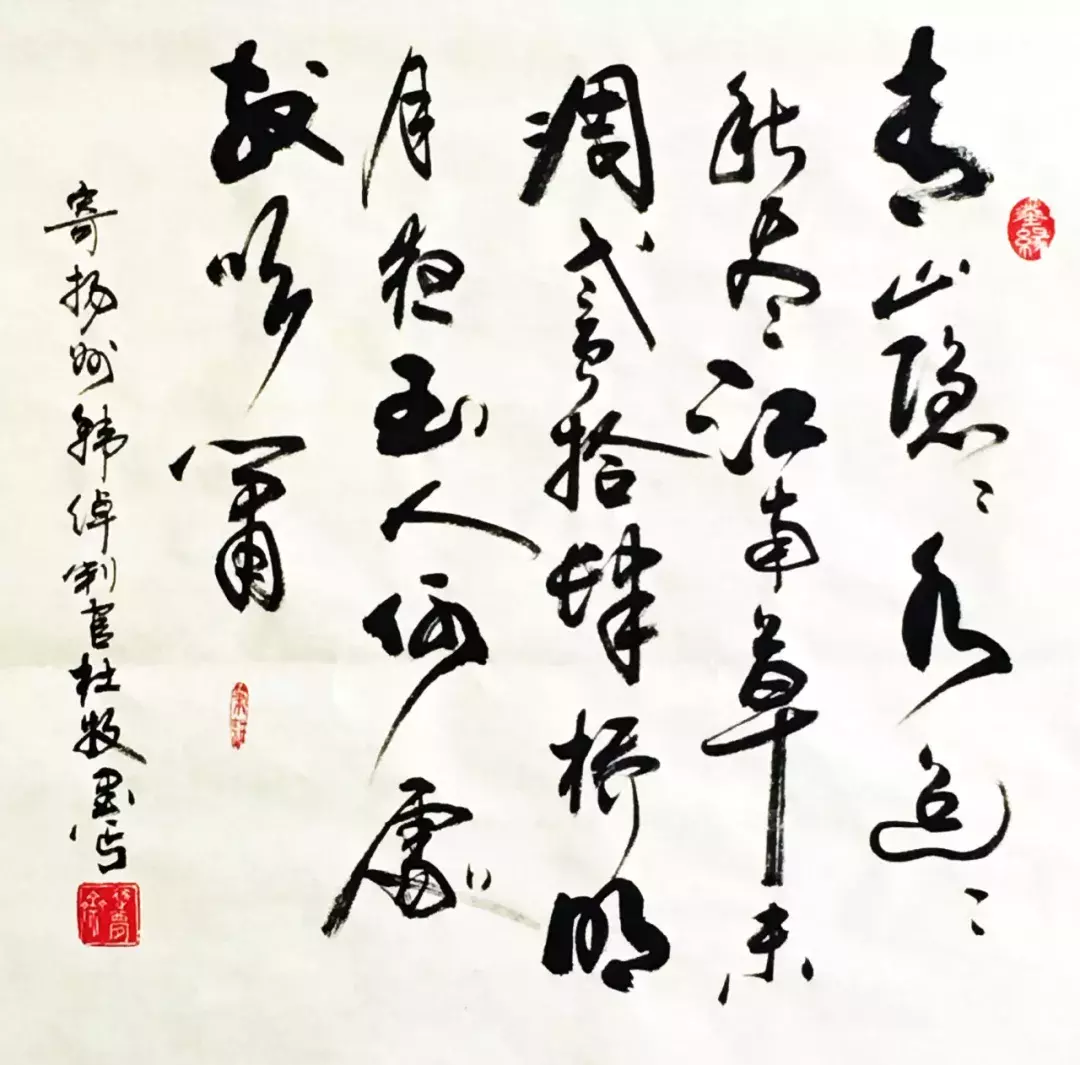 青山隐〻水迢〻
秋尽江南草未
凋贰拾肆桥明
月夜玉人何處
教吹箫
寄扬州韩绰判官杜牧墨写